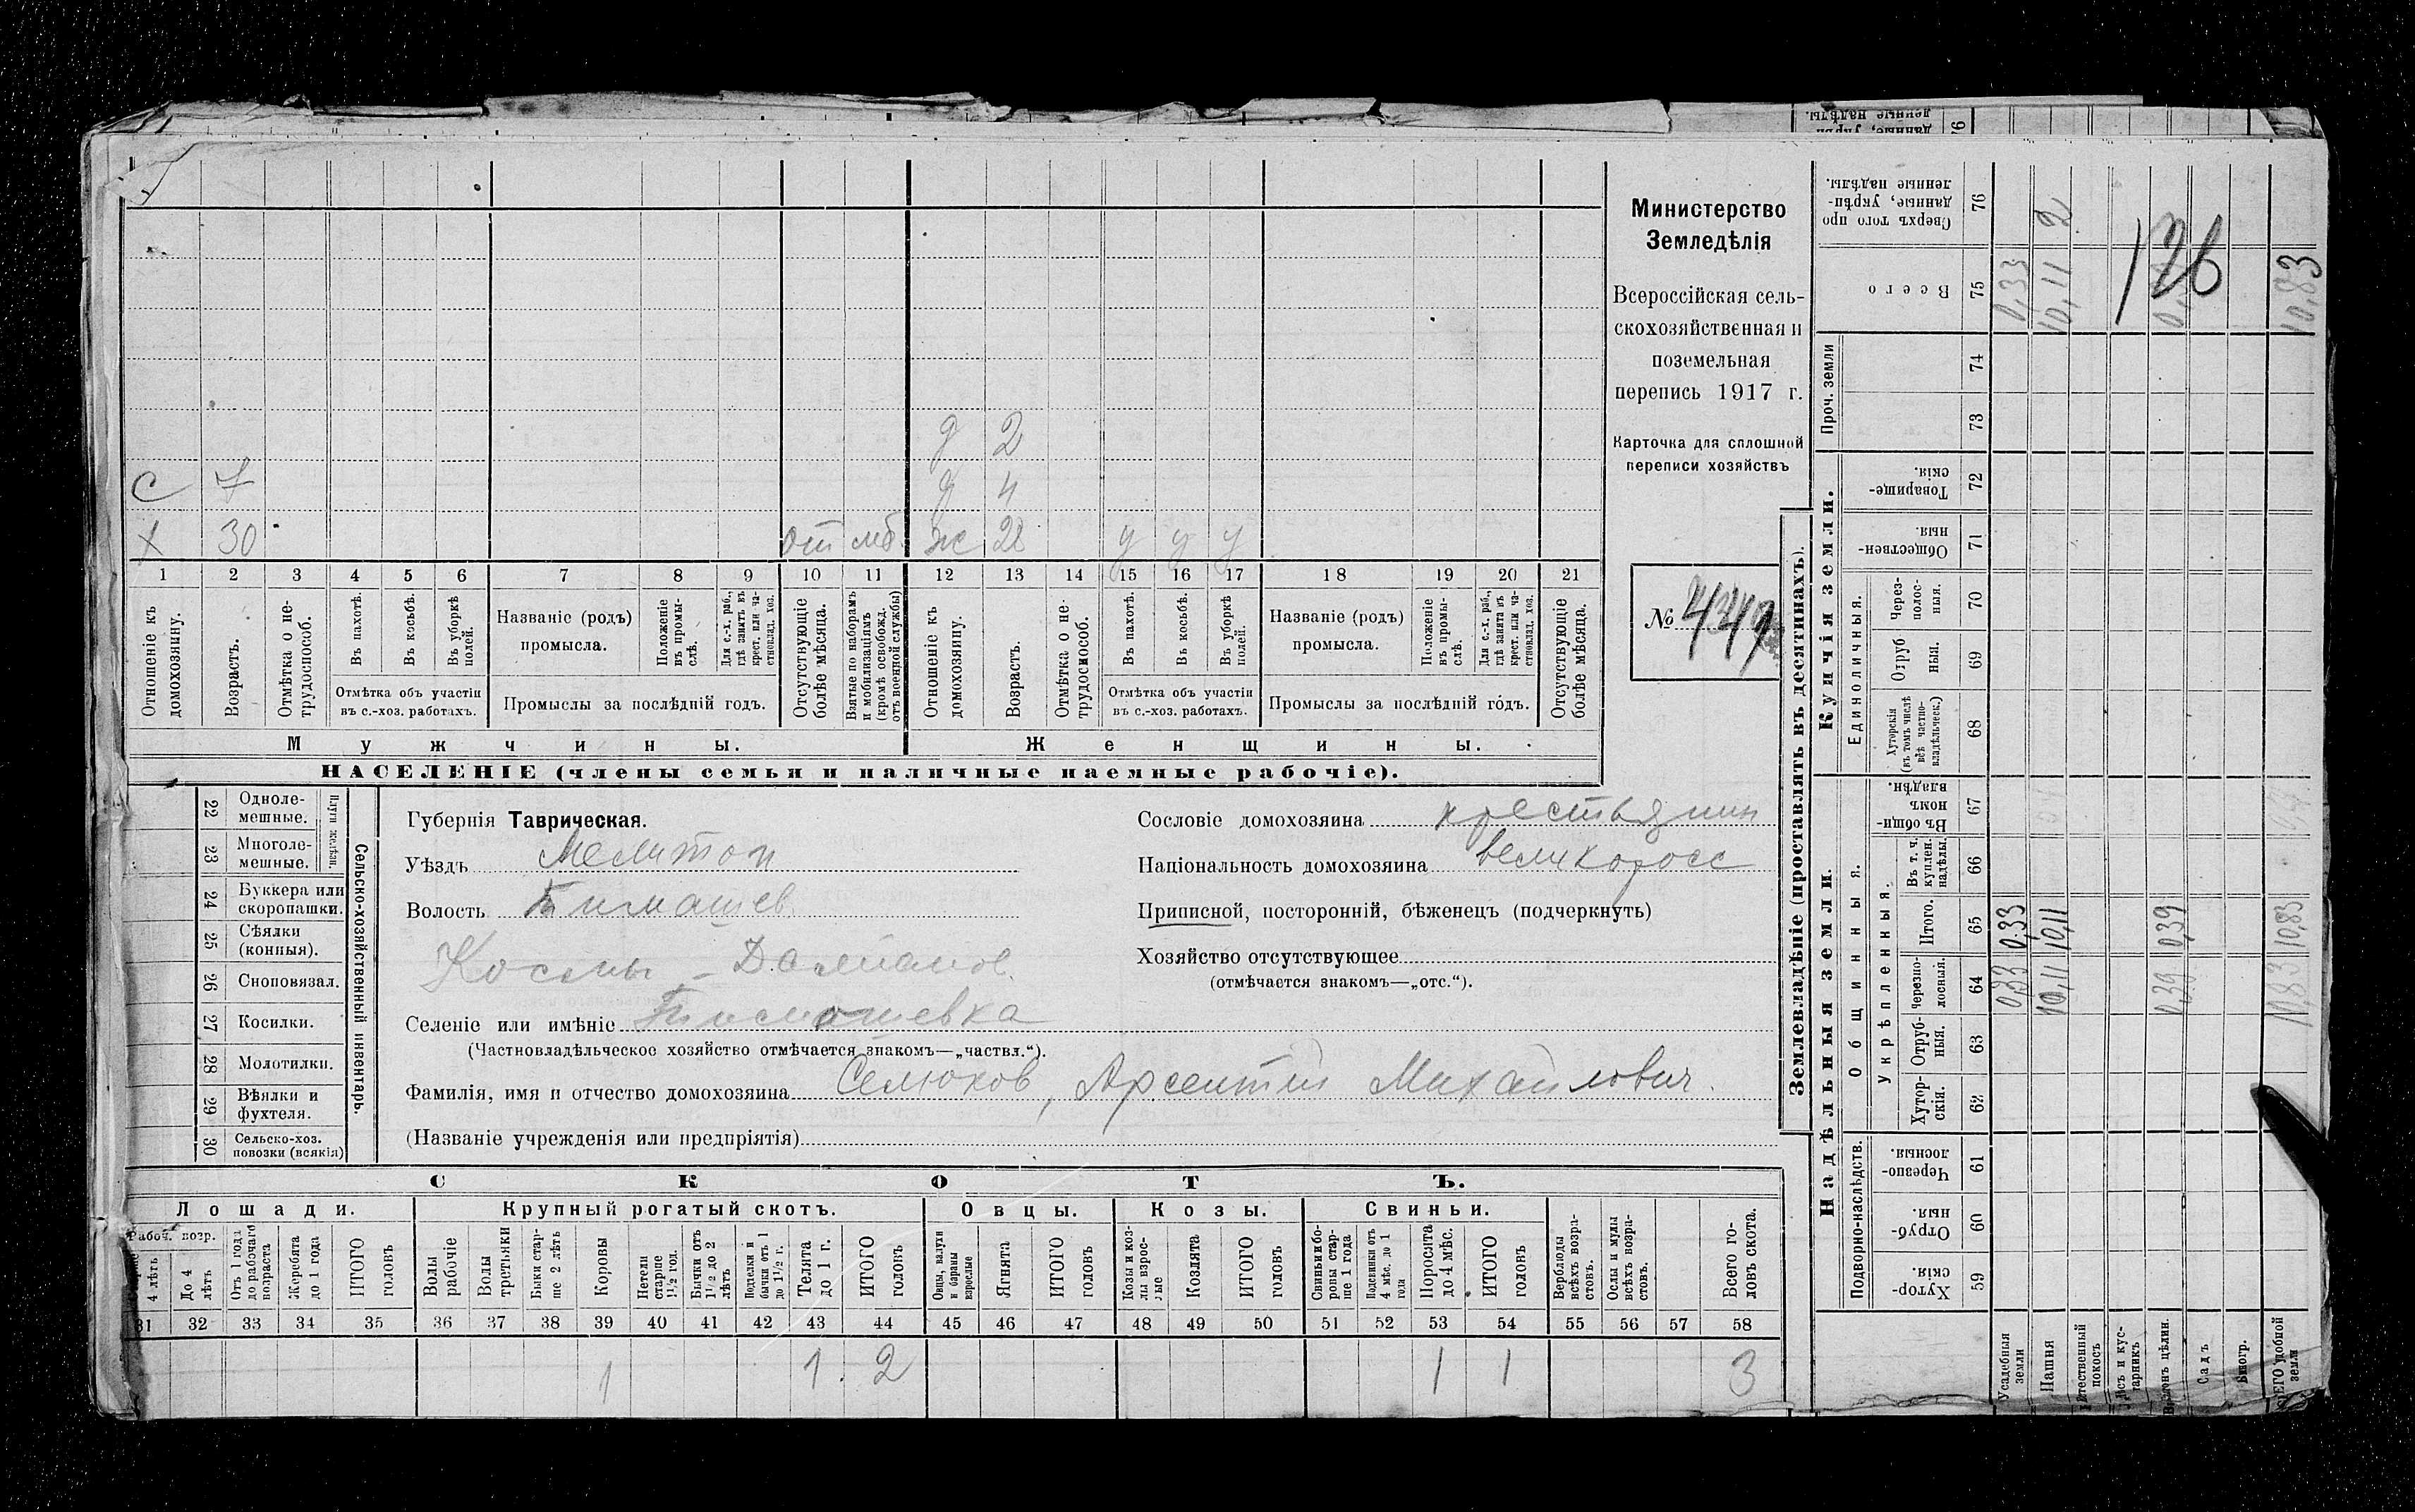 денные, укрѣп-
ленные надѣлы.
76
д 2
С 7 д 4
Х 30 от мб ж 28 у у у
1 2 3 4 5 6 7 8 9 10 11 12 13 14 15 16 17 18 19 20 21
Отношеніе къ домохозяину.
Возрастъ.
Отмѣтка о не-трудоспособ.
Въ пахотѣ.
Въ косьбѣ.
Въ уборкѣ полей.
Отмѣтка объ участіи
въ с.-хоз. работахъ.
Названіе (родъ)
промысла.
Положеніе въ промы-слѣ.
Для с.-х. раб., гдѣ занятъ въ крест. или ча-стновлад. хоз.
Промыслы за послѣдній годъ.
Отсутствующіе болѣе мѣсяца.
Взятые по наборамъ и мобилизаціямъ (кромѣ освобожд. отъ военной службы)
Отношеніе къ домохозяину.
Возрастъ.
Отмѣтка о не-трудоспособ.
Въ пахотѣ.
Въ косьбѣ.
Въ уборкѣ полей.
Отмѣтка объ участіи
въ с.-хоз. работахъ.
Названіе (родъ)
промысла.
Положеніе въ промы-слѣ.
Для с.-х. раб., гдѣ занята въ крест. или ча-стновлад. хоз.
Промыслы за послѣдній годъ.
Отсутствующіе болѣе мѣсяца.
Мужчины.
Женщины.
НАСЕЛЕНІЕ (члены семьи и наличные наемные рабочіе).
Министерство
Земледѣлія
Всероссійская сель-
скохозяйственная и
поземельная
перепись 1917 г.
Карточка для сплошной
переписи хозяйствъ
№
Сельско-хозяйственный инвентарь.
Плуги желѣзн.
22 Одноле-
мешные.
23 Многоле-
мешные.
24 Буккера или
скоропашки.
25 Сѣялки
(конныя).
26 Сноповязал.
27 Косилки.
28 Молотилки.
29 Вѣялки и
фухтеля.
30 Сельско-хоз.
повозки (всякія)
Губернія Таврическая.
Уѣздъ Мелитоп
Волость Тимашев.
Косьмы - Даміанов.
Селеніе или имѣніе Тимошевка
(Частновладѣльческое хозяйство отмѣчается знакомъ—„частвл.“).
Фамилія, имя и отчество домохозяина Селюков, Арсентій Михайлович.
(Названіе учрежденія или предпріятія)
Сословіе домохозяина крестьянин
Національность домохозяина великоросс
Приписной, посторонній, бѣженецъ (подчеркнуть)
Хозяйство отсутствующее
(отмѣчается знакомъ—„отс.“).
СКОТЪ.
Лошади.
Крупный рогатый скотъ.
Овцы.
Козы.
Свиньи.
Рабоч. возр.
4 лѣтъ
До 4 лѣтъ
Отъ 1 года до рабочаго возраста
Жеребята до 1 года
ИТОГО головъ
Волы рабочіе
Волы третьяки
Быки стар-ше 2 лѣтъ
Коровы
Нетели старше 1½ год.
Бычки отъ 1½ до 2 лѣтъ
Подтелки и бычки отъ 1 до 1½ г.
Телята до 1 г.
ИТОГО головъ
Овцы, валухи и бараны взрослые
Ягнята
ИТОГО головъ
Козы и коз-лы взрос-лые
Козлята
ИТОГО головъ
Свиньи и бо-ровы стар-ше 1 года
Подсвинки отъ 4 мѣс. до 1 года
Поросята до 4 мѣс.
ИТОГО головъ
Верблюды всѣхъ возра-стовъ.
Ослы и мулы всѣхъ возра-стовъ.
Всего го-ловъ скота.
31 32 33 34 35 36 37 38 39 40 41 42 43 44 45 46 47 48 49 50 51 52 53 54 55 56 57 58
1 1 2 1 1 3
Землевладѣніе (проставлять въ десятинахъ).
Надѣльныя земли.
Купчія земли.
Проч. земли
Подворно-наслѣдств.
Общинныя.
Укрѣпленныя.
Единоличныя.
Сверхъ того про
данные, укрѣп-
ленные надѣлы.
76 2
Всего
75 0,33 10,11 10,83
126
74
73
Товарище-
скія.
72
Обществен-
ныя
71
Через-
полос-
ныя.
70
Отруб
ныя.
69
Хуторскія
(въ томъ числѣ
всѣ частно-
владѣльческ.)
68
Въ общи
номъ
владѣн.
67
Въ т. ч.
куплен.
надѣлы.
66
Итого.
65 0,33 10,11 0,39 10,83
Черезпо-
лосныя.
64 0,33 10,11 0,39 10,83
Отруб-
ныя.
63
Хутор-
скія.
62
Черезпо-
лосныя.
61
Отруб-
ныя.
60
Хутор-
скія.
59
Усадебныя
земли
Пашня
Естественный
покосъ
Лѣсъ и кус-
тарникъ
Садъ
Виногр.
ВСЕГО удобной
земли